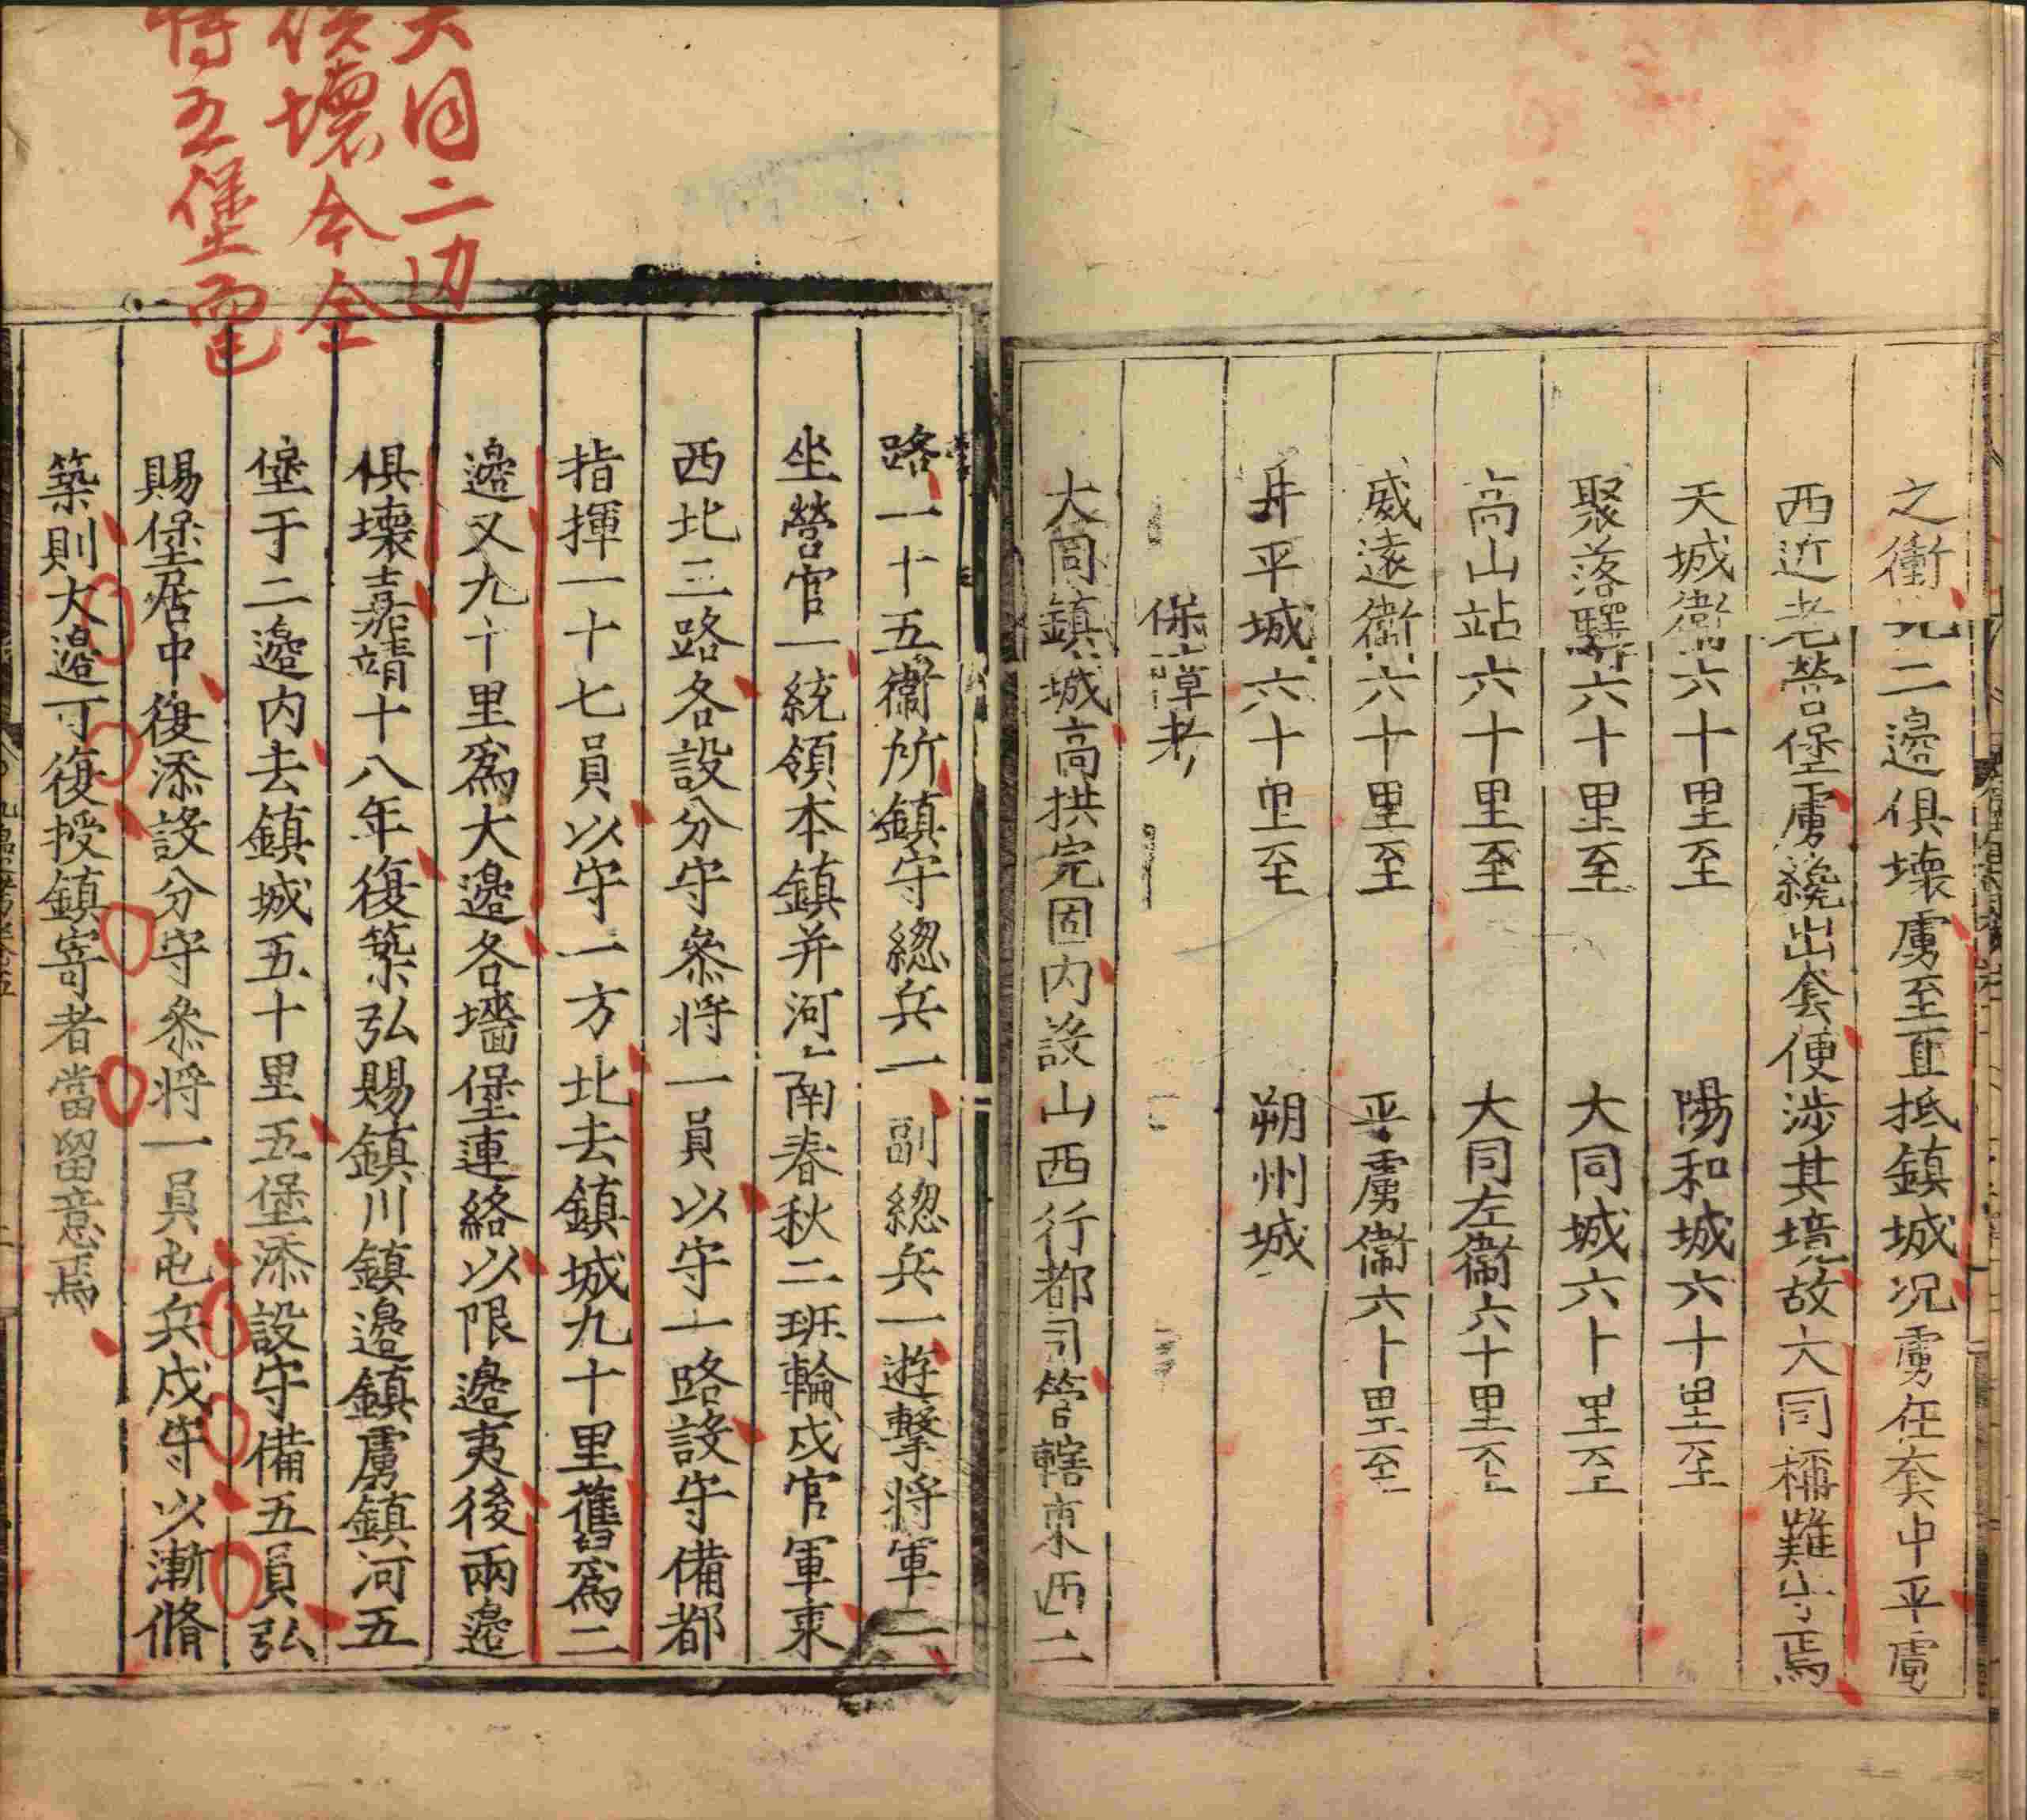 之衝北二邊俱壞虜至直抵鎮城况虜在套中平虜
西近老營堡虜纔出套便涉其境故大同稱難守焉
天城衞六十里至 陽和城六十里至
聚落驛六十里至 大同城六十里至
高山站六十里至 大同左衞六十里至
威遠衞六十里至 平虜衞六十里至
井平城六十里至 朔州城
保障考
大同鎮城高拱完固内設山西行都司管轄東西二
路一十五衞所鎮守緫兵一副緫兵一遊擊将軍二
坐營官一統領本鎮并河南春秋二班輪戍官軍東
西北三路各設分守叅将一員以守一路設守備都
指揮一十七員以守一方北去鎮城九十里舊爲二
邊又九十里爲大邊各墻堡連絡以限邊夷後兩邊
俱壞嘉靖十八年復築弘賜鎮川鎮邊鎮虜鎮河五
堡于二邊内去鎮城五十里五堡添設守備五員弘
賜堡居中復添設分守叅将一員屯兵戍守以漸脩
築則大邊可復授鎮寄者當留意焉
大同二边
俱壞今全
恃五堡而已